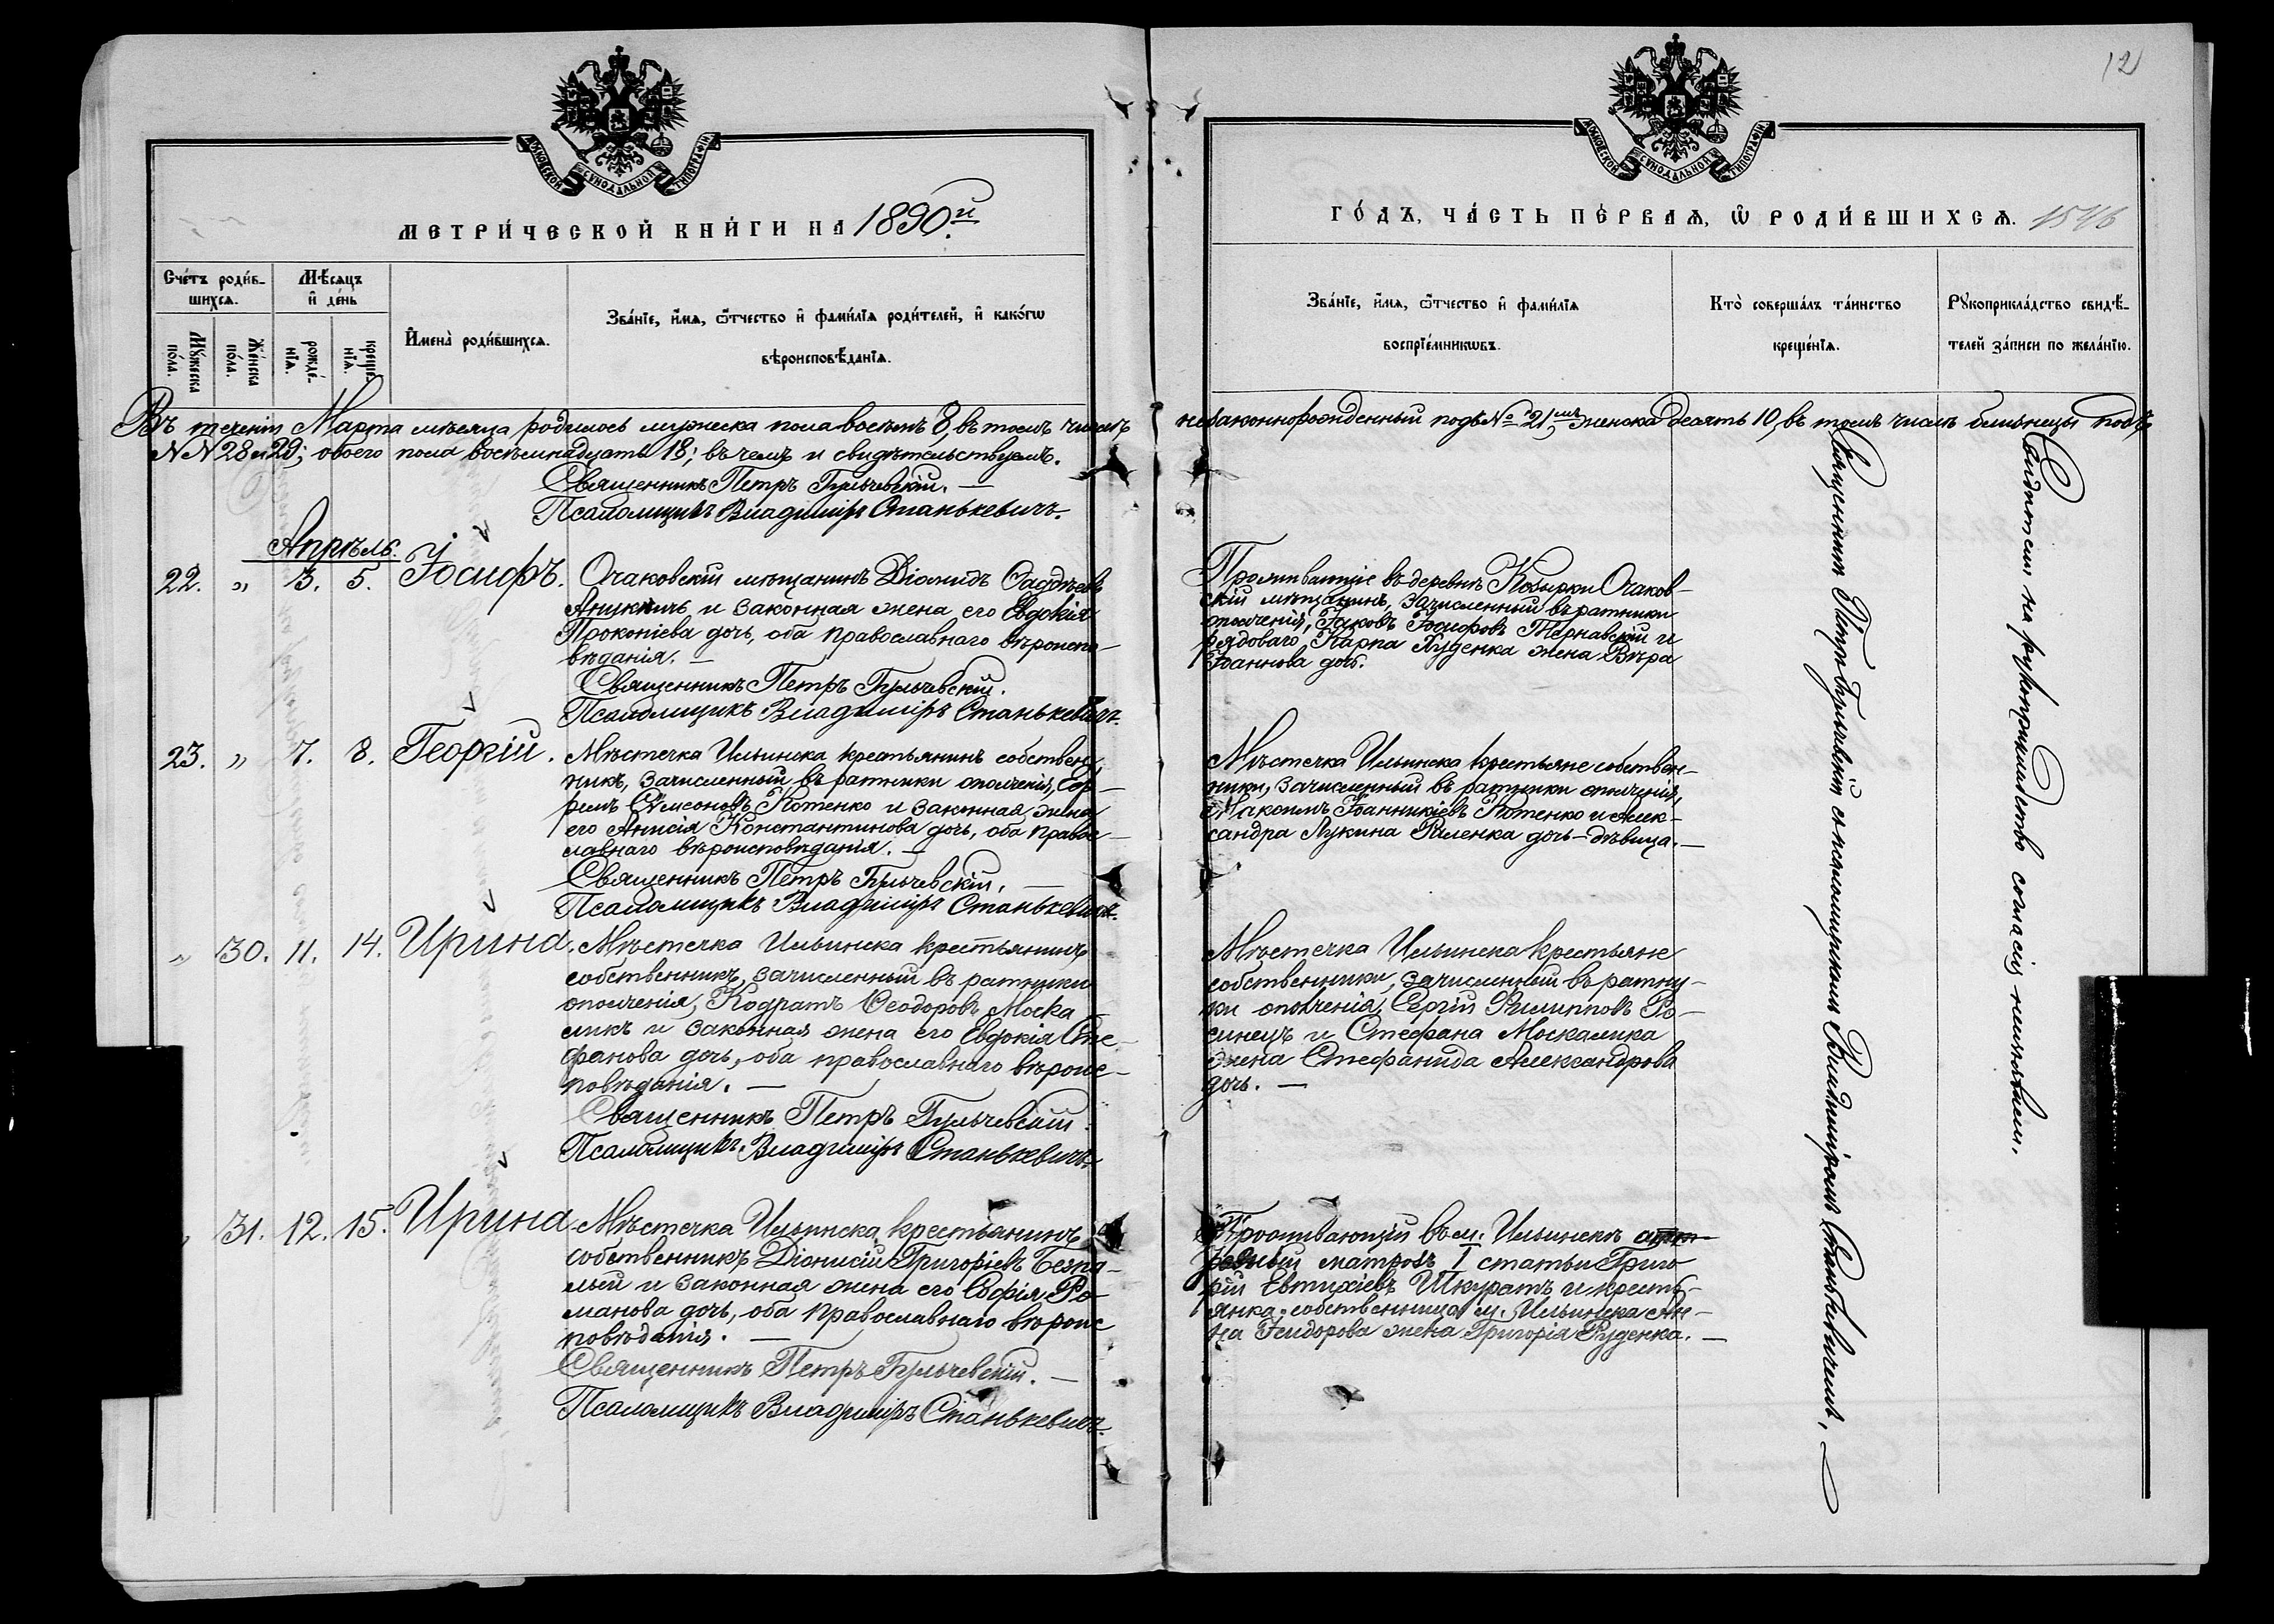 12
МОСКОВСКОЙ СѴНОДАЛЬНОЙ ТИПОГРАФІИ
МОСКОВСКОЙ СѴНОДАЛЬНОЙ ТИПОГРАФІИ
МЕТРИ́ЧЕСКОЙ КНИ́ГИ НА 1890.й
ГО́ДЪ, ЧА́СТЬ ПЕ́РВАѦ, Ѽ РОДИ́ВШИХСѦ.
Сче́тъ роди́в-
шихсѧ.
Мѣ́сѧцъ
и҆ де́нь
Мꙋ́жеска
по́ла.
Же́нска
по́ла.
рожде́-
нїѧ.
креще́-
нїѧ.
И҆мена̀ роди́вшихсѧ.
Зва́нїе, и҆́мѧ, ѻ҆́тчество и҆ фами́лїѧ роди́телей, и҆ како́гѡ
вѣроисповѣ́данїѧ.
Зва́нїе, и҆́мѧ, ѻ҆́тчество и҆ фами́лїѧ
воспрїе́мникѡвъ.
Кто̀ соверша́лъ та́инство
креще́нїѧ.
Рꙋкоприкла́дство свидѣ́-
телей за́писи по жела́нїю.
Въ теченіи Марта мѣсяца родилось мужеска пола восемь 8, въ томъ числѣ незаконнорожденный подъ № 21мъ, женска десять 10, въ томъ числѣ близнецы подъ
N N 28 и 29; обоего пола восемьнадцать 18; въ чемъ и свидѣтельствуемъ.
Священникъ Петръ Гульчевскій. —
Псаломщикъ Владиміръ Станькевичъ.
Апрѣль.
22. „ 3. 5. Іосифъ. Очаковскій мѣщанинъ Діомидъ Фаддѣевъ
и законная жена его Евдокія
Прокопіева дочь, оба православнаго вѣроиспо-
вѣданія. —
Священникъ Петръ Гульчевскій.
Псаломщикъ Владиміръ Станькевичъ.
Проживающіе въ деревнѣ Козырки Очаков-
скій мѣщанинъ, зачисленный въ ратники
ополченія, Іаковъ Іосифовъ Тернавскій и
рядоваго Карпа Худенка жена Вѣра
Іоаннова дочь.
23. „ 7. 8. Георгій. Мѣстечка Ильинска крестьянинъ собствен-
никъ, зачисленный въ ратники ополченія, Еф-
ремъ Симеоновъ Котенко и законная жена
его Анисія Константинова дочь, оба правос-
лавнаго вѣроисповѣданія. —
Священникъ Петръ Гульчевскій. —
Псаломщикъ Владиміръ Станькевичъ.
Мѣстечка Ильинска крестьяне собствен-
ники, зачисленный въ ратники ополченія,
Максимъ Іоанникіевъ Котенко и Алек-
сандра Лукина дочь-дѣвица. —
„ 30. 11. 14. Ирина. Мѣстечка Ильинска крестьянинъ
собственникъ, зачисленный въ ратники
ополченія, Кодратъ Ѳеодоровъ Моска-
ликъ и законная жена его Евдокія Сте-
фанова дочь, оба православнаго вѣроис-
повѣданія. —
Священникъ Петръ Гульчевскій.
Псаломщикъ Владиміръ Станькевичъ.
Мѣстечка Ильинска крестьяне
собственники, зачисленный въ ратни-
ки ополченія, Сергій Филипповъ Ро-
синецъ и Стефана Москалика
жена Стефанида Александрова
дочь. —
„ 31. 12. 15. Ирина Мѣстечка Ильинска крестьянинъ
собственникъ Діонисій Григоріевъ Безпа-
лый и законная жена его Софія Ро-
манова дочь, оба православнаго вѣроис
повѣданія. —
Священникъ Петръ Гульчевскій. —
Псаломщикъ Владиміръ Станькевичъ.
Проживающій въ м. Ильинскѣ
матросъ 1 статьи Григо
рій Евтихіевъ Шкуратъ и кресть-
янка-собственница м. Ильинска Ан-
на Ѳеодорова жена Григорія Руденка. —
Священникъ Петръ Гульчевскій съ псаломщикомъ Владиміромъ Станькевичемъ, —
Свидѣтели на рукоприкладство согласія не изъявили.